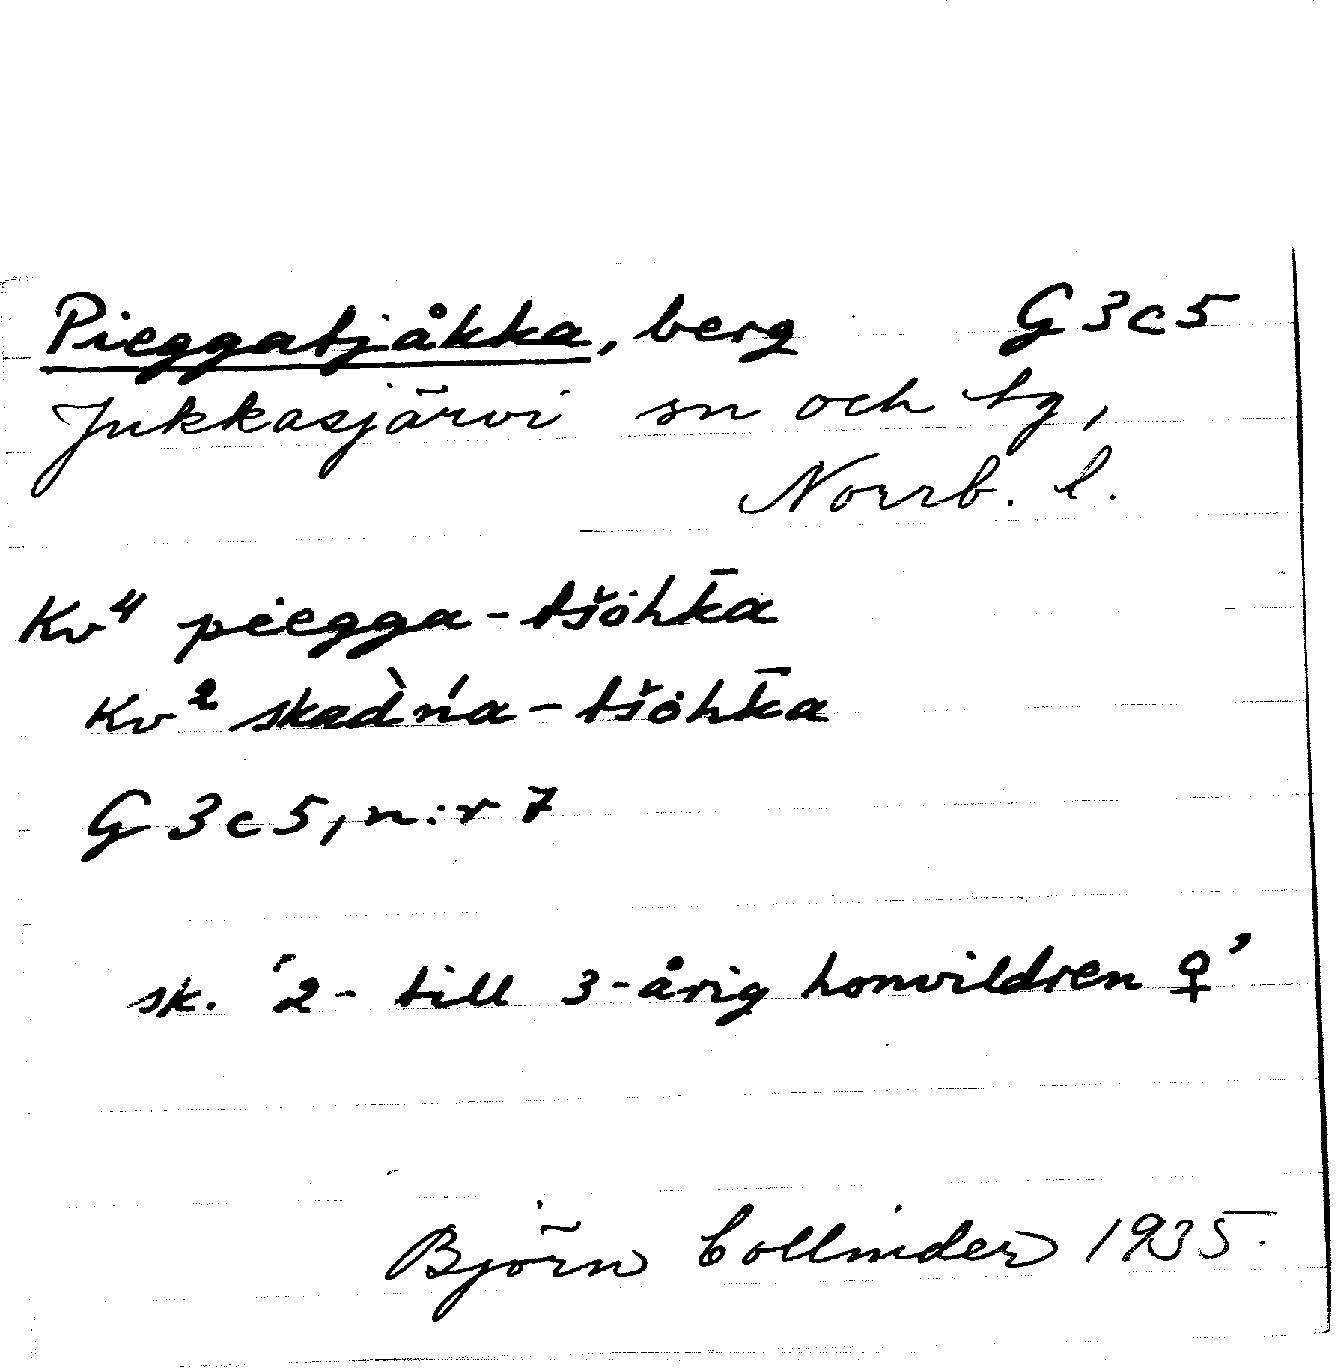 Pieggatjåkka, berg G3c5
Jukkasjärvi sn och tg,
Norrb. l.
Kv⁴ piegga-tšȯhk̄a
Kv² skad̀ńa-tšȯhk̄a
G3c5, n:r 7
sk. '2- till 3-årig honvildren ♀'
Björn Collinder 1935.